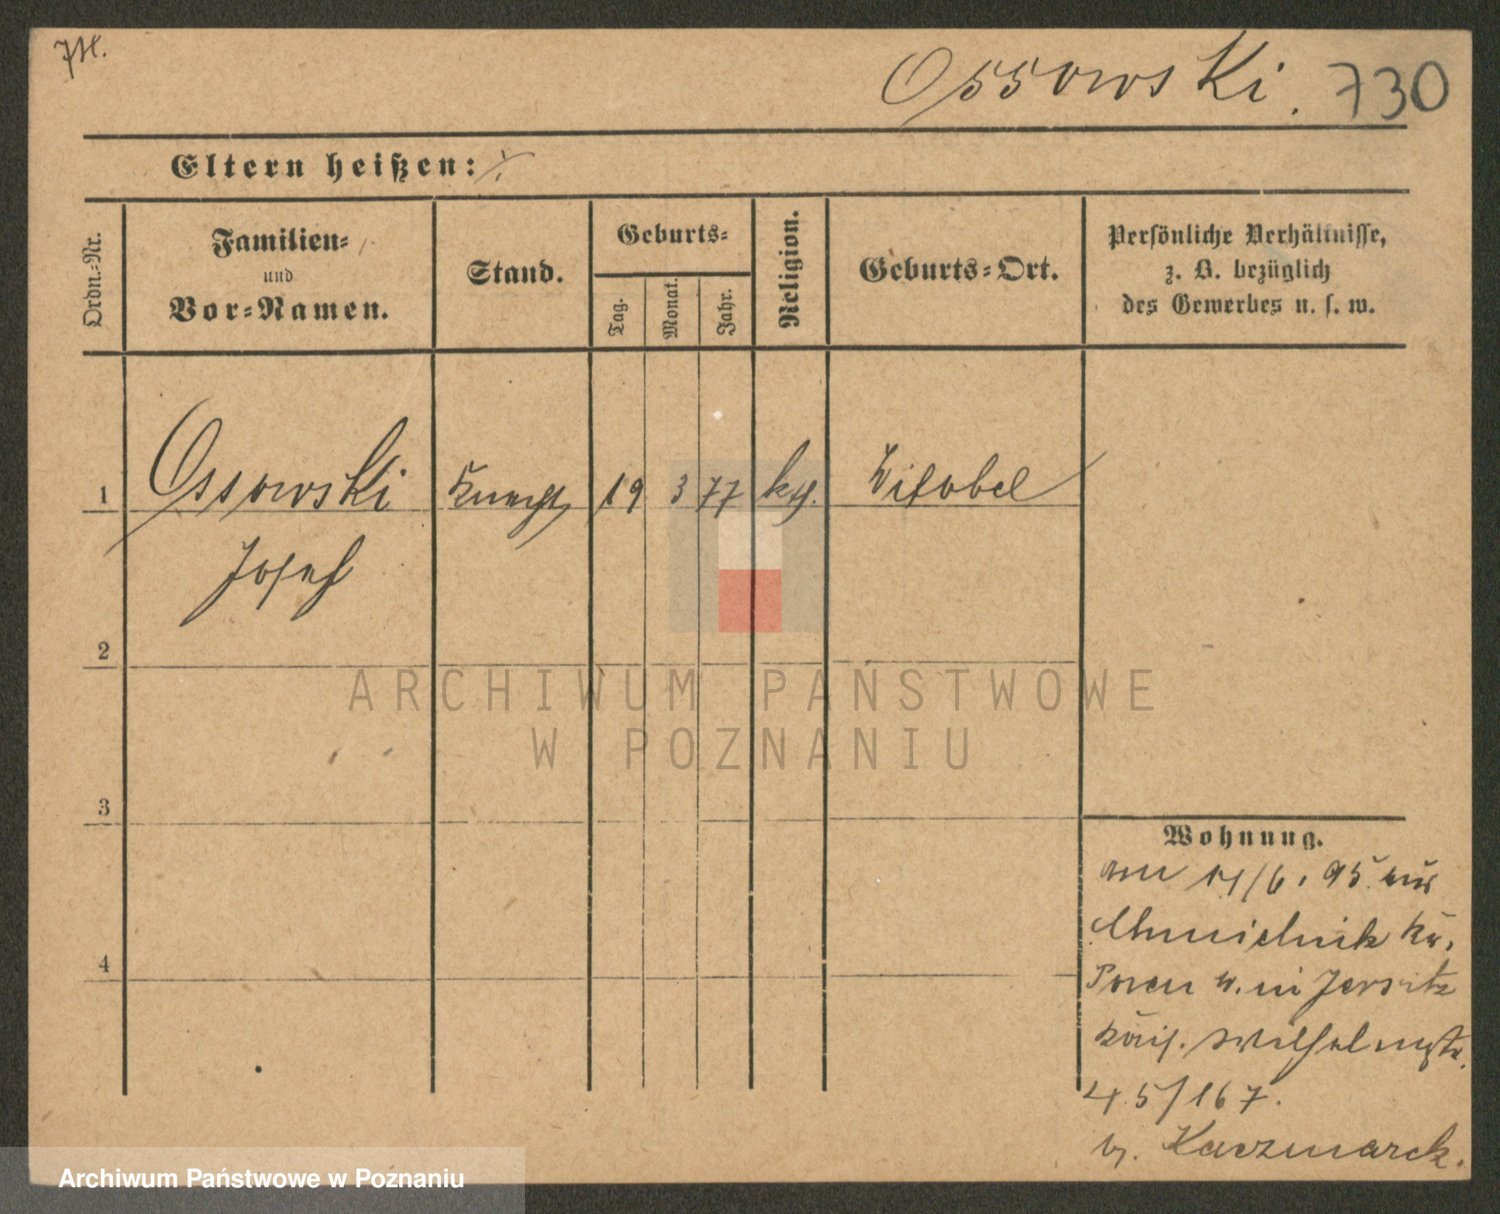 Ossowski. 730
Eltern heißen:
Ordn.-Nr.
Familien-
und
Vor-Namen.
Stand.
Geburts-
Tag.
Monat.
Jahr.
Religion.
Geburts-Ort.
Persönliche Verhältnisse,
z. B. bezüglich
des Gewerbes u. s. w.
1 Ossowski Knecht 19 3 77 kth.
Josef
2
ARCHIWUM PAŃSTWOWE
W POZNANIU
3
Wohnung.
/6. 95. aus
Chmielnik Kr.
Posen in Jersitz
Kais. Wilhelmstr.
45/167.
b. Kaczmarek.
4
Archiwum Państwowe w Poznaniu